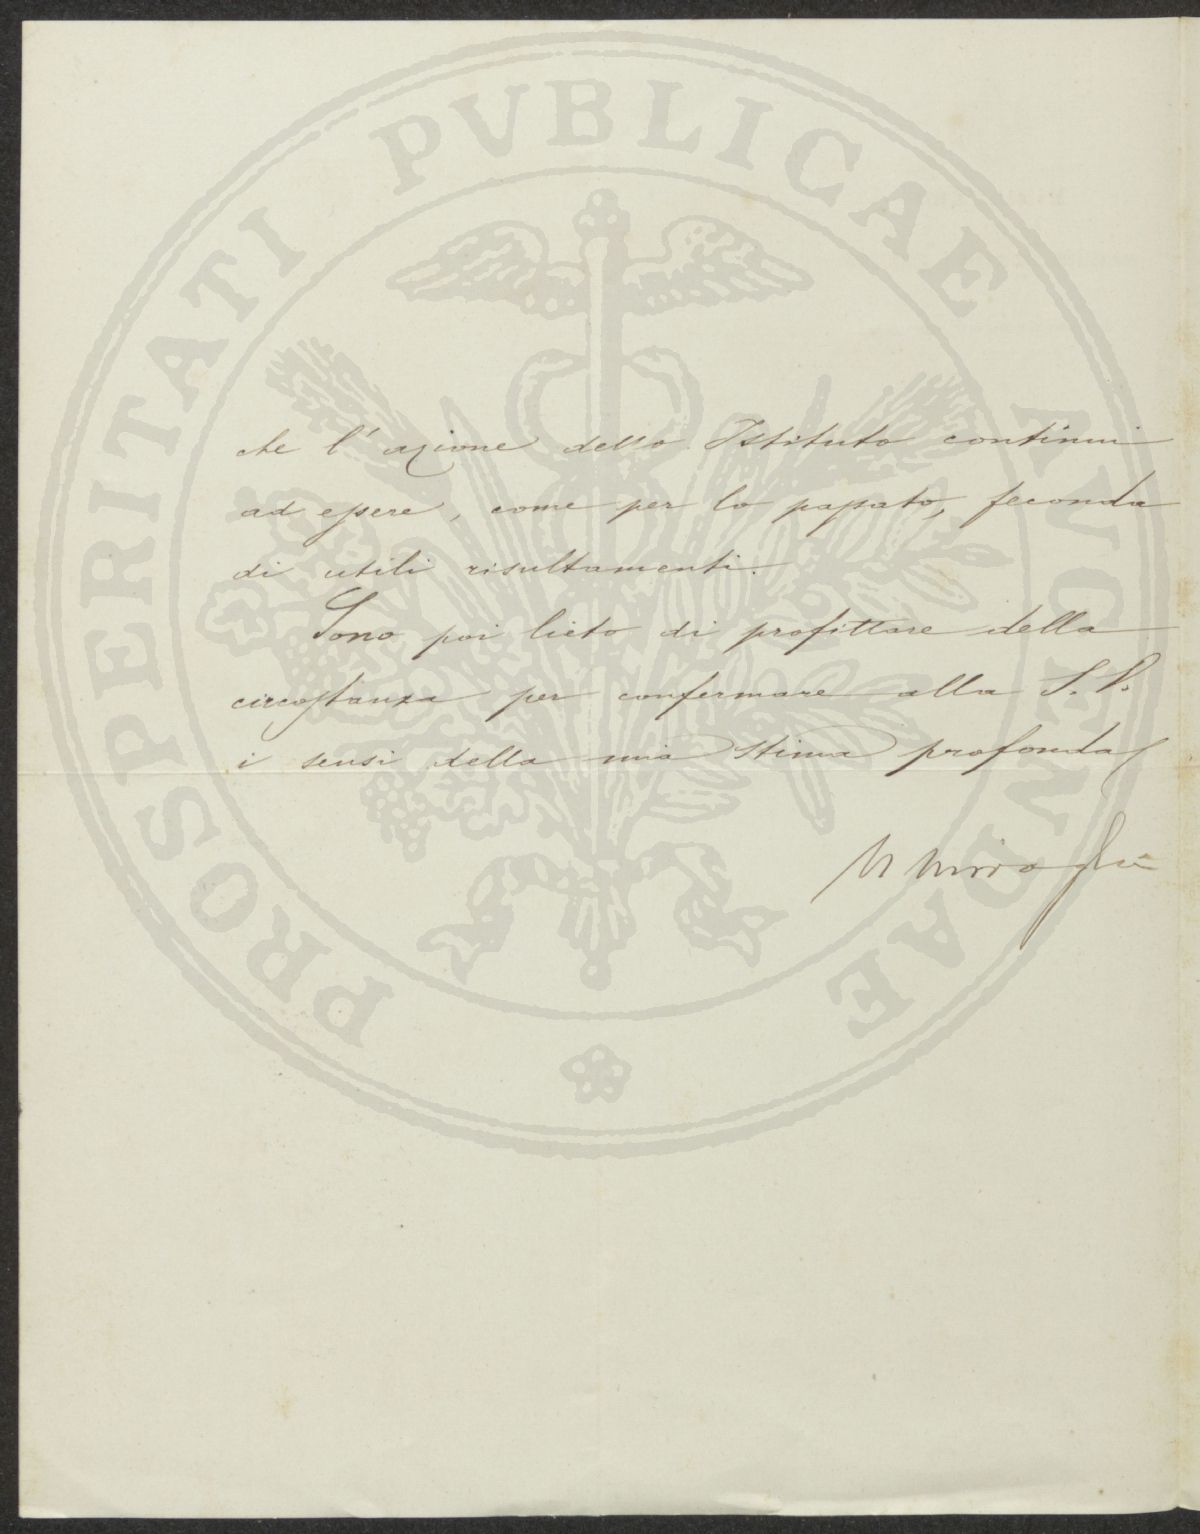 PROSPERITATI PVBLICAE AVGENDAE
che l'azione dello Istituto continui
ad essere, come per lo passato, feconda
di utili risultamenti.
Sono poi lieto di profittare della
circostanza per confermare alla S. V.
i sensi della mia stima profonda
N Miraglia